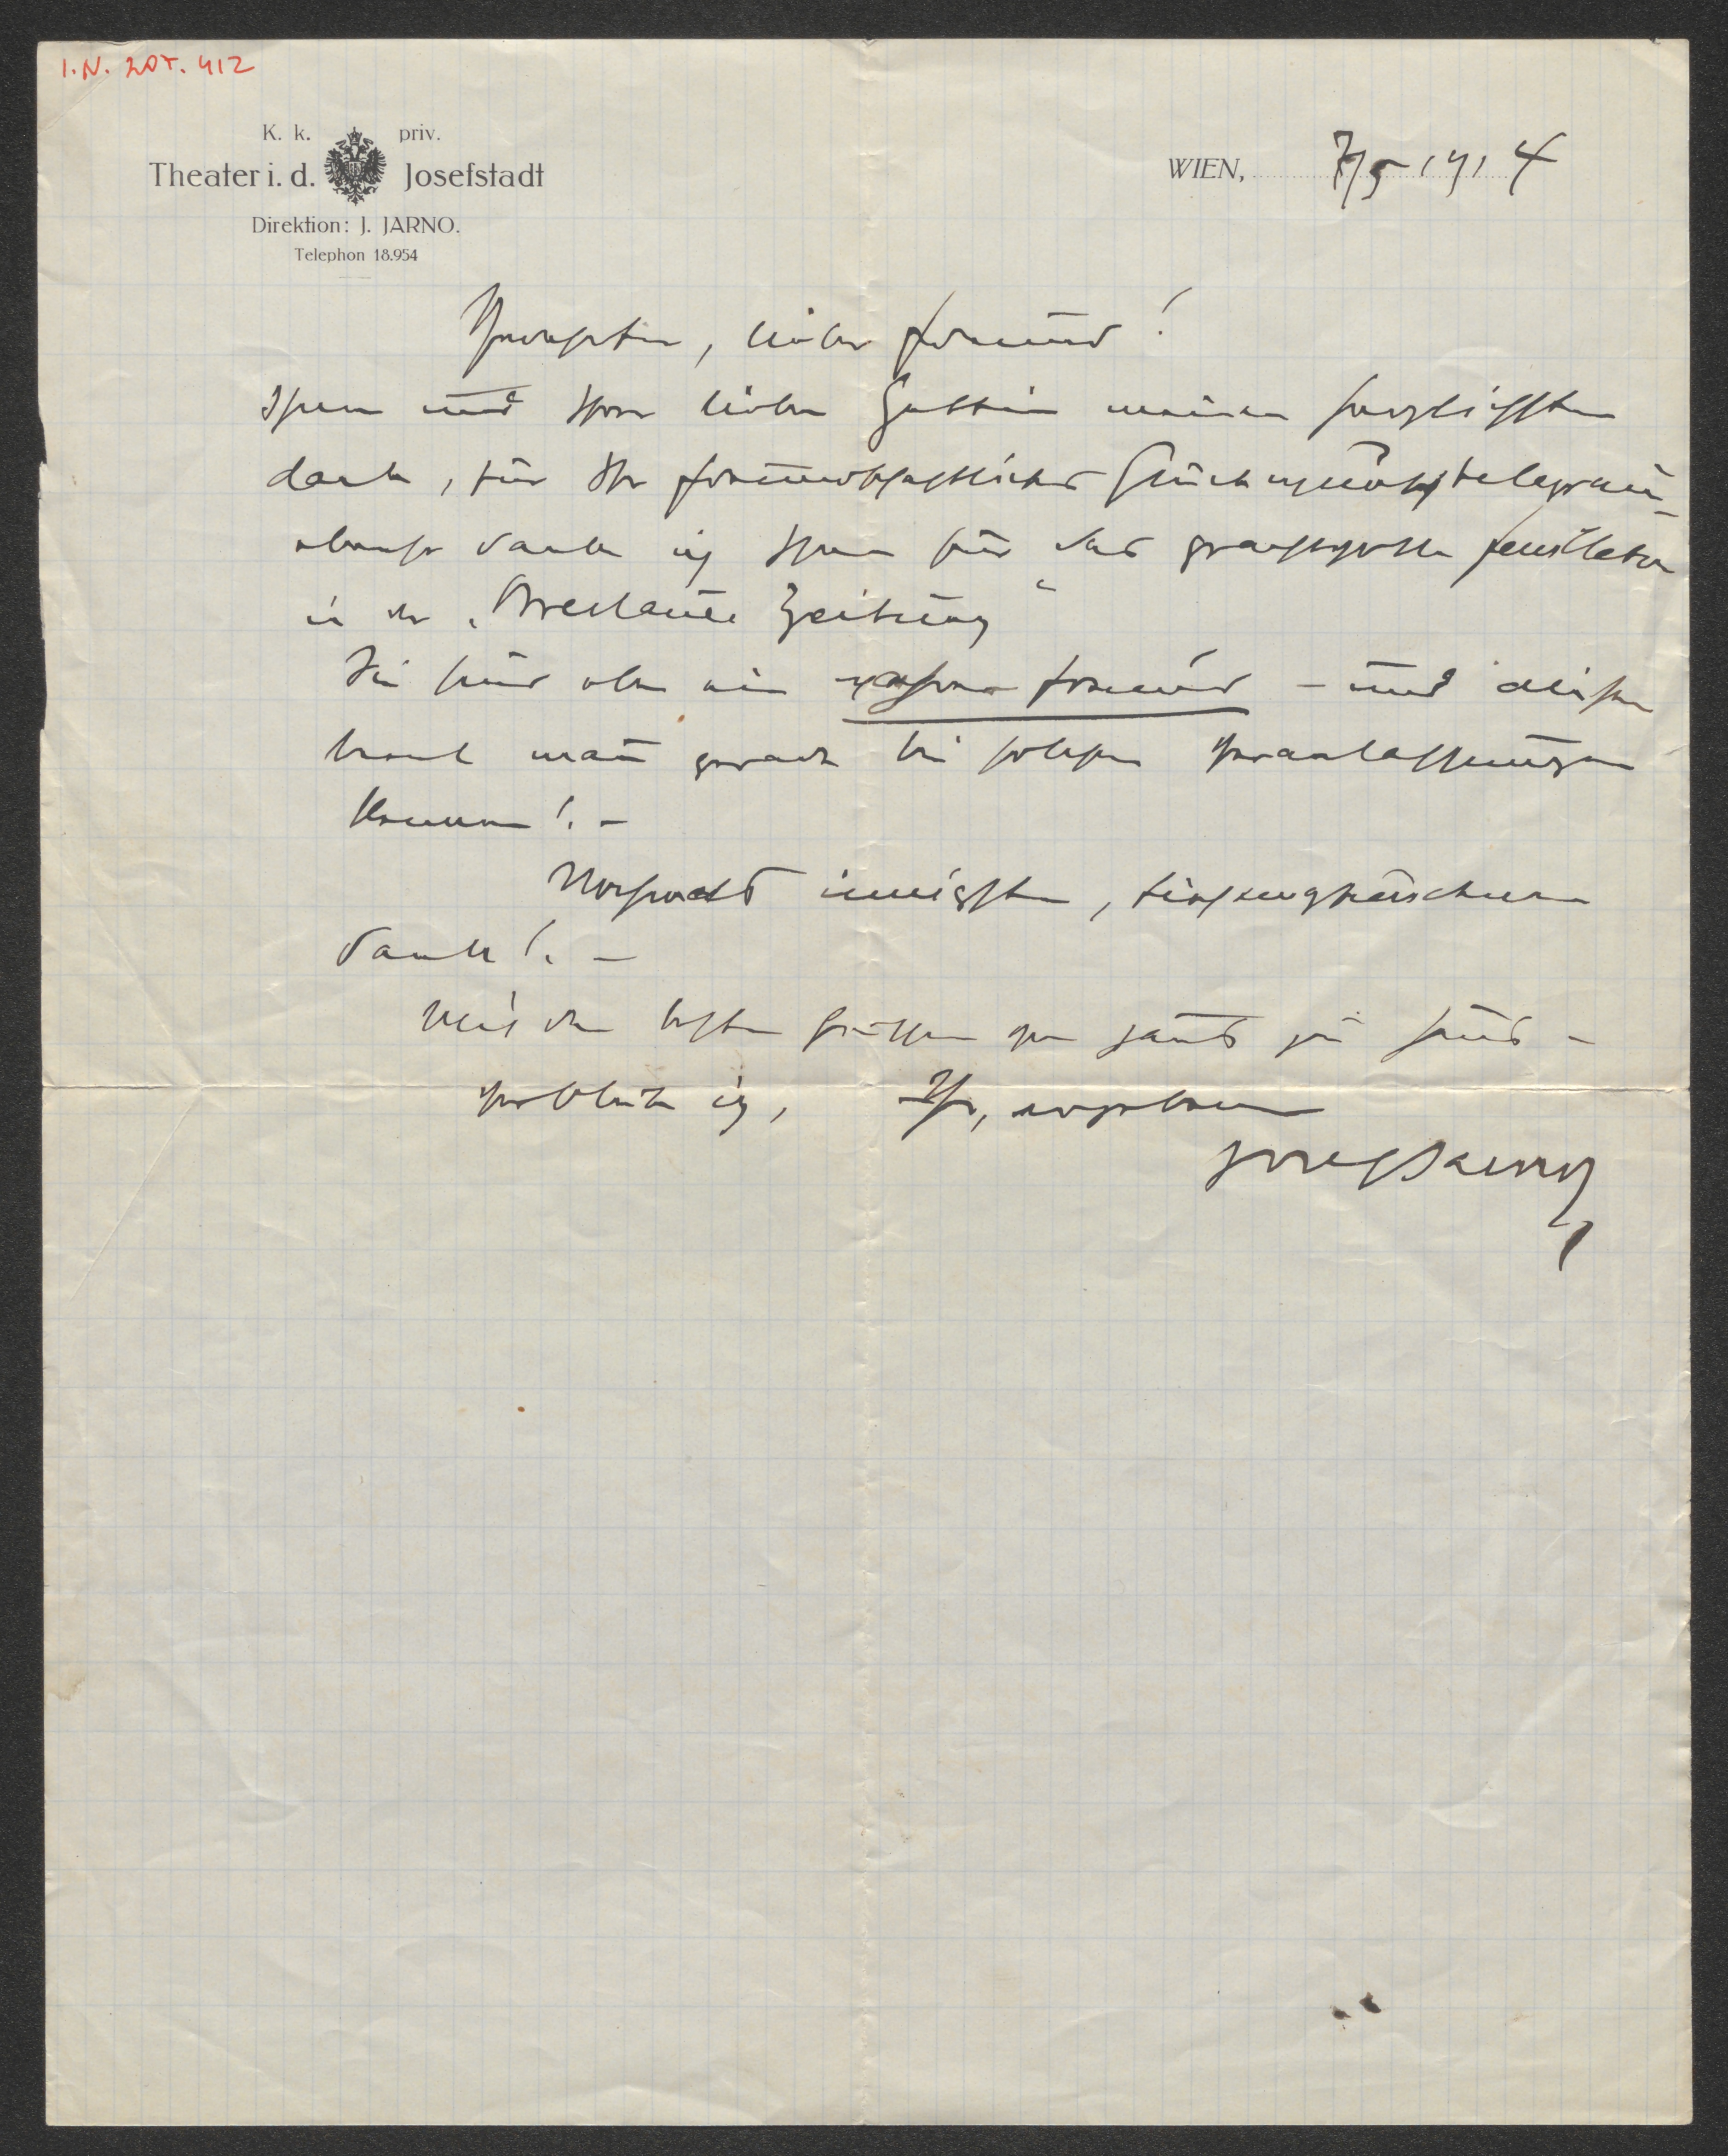 I.N. 205.412
K. k. priv.
Theater i. d. Josefstadt
Direktion: J. JARNO.
Telephon 18.954
WIEN, 7/5 1914
Verehrter, lieber Freund!
Ihnen und Ihrer lieben Gattin meinen herzlichsten
Dank, für Ihr freundschaftliches Glückwunschtelegramm
ebenso danke ich Ihnen für das grandiose Feuilleton
in der „Breslauer Zeitung"
Sie sind eben ein wahrer Freund – und diese
lernt man gerade bei solchen Veranlassungen
kennen! –
Nochmals innigsten, tiefempfundenen
Dank! –
Mit den besten Grüssen von Haus zu Haus –
verbleibe ich, Ihr, ergebener
Josef Jarno